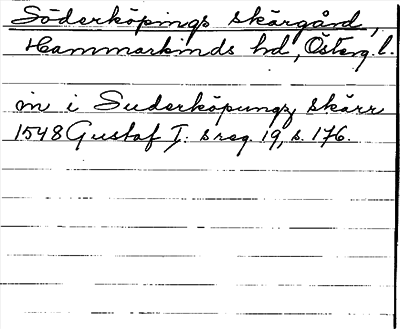 Söderköpings skärgård,
Hammarkinds hd, Österg. l.
in i Suderköpungz skärr
1548 Gustaf I:s reg. 19, s. 176.